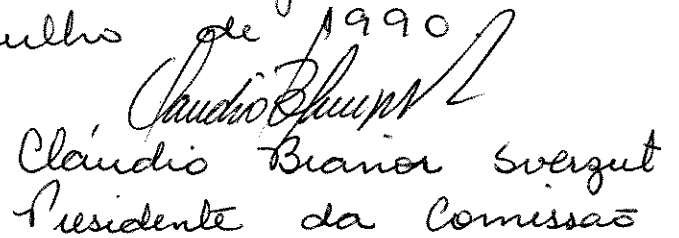 ulho de 1990.
Cláudio Bianor Sverzut
Presidente da Comissão